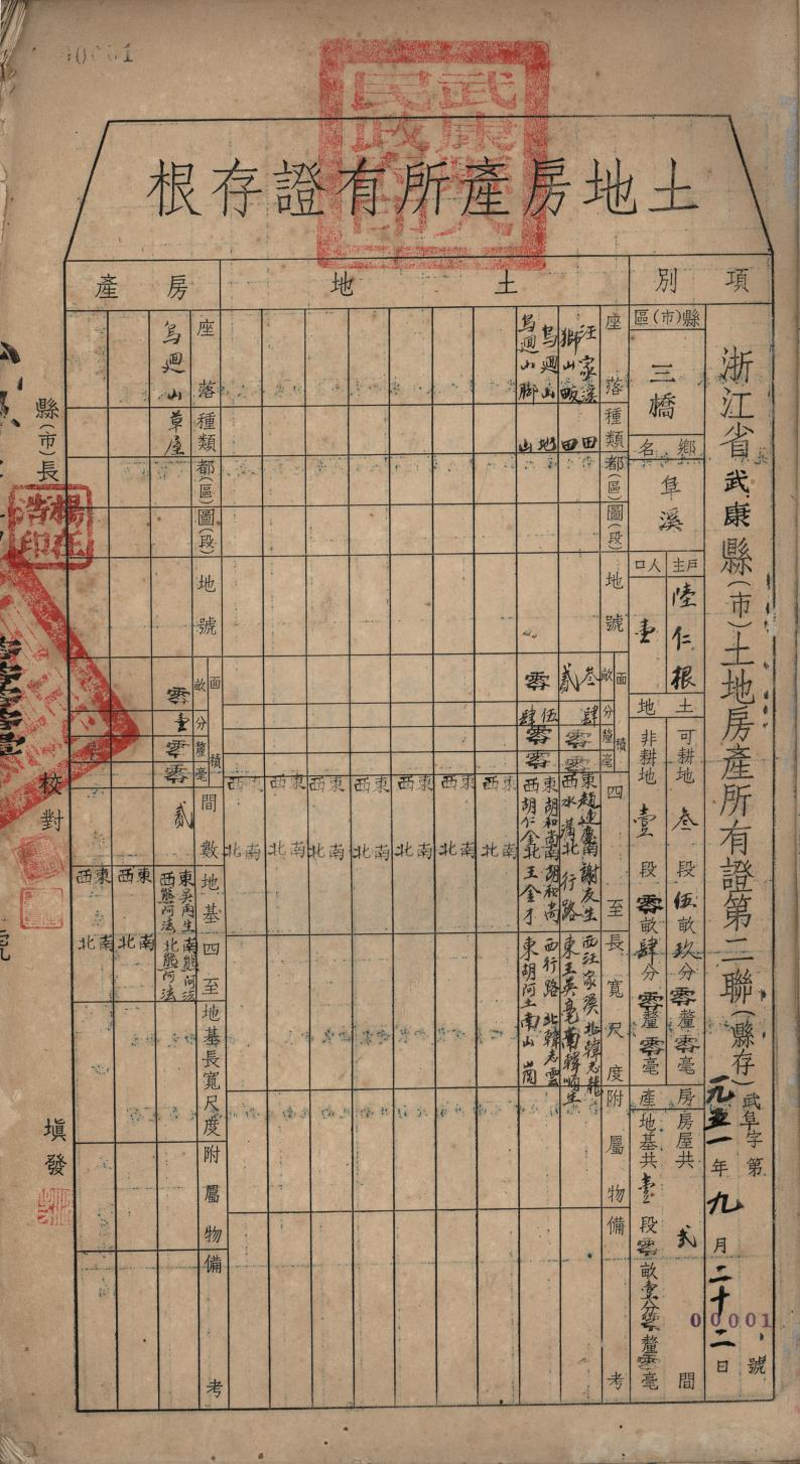 土地房產所有證存根
浙江省武康縣(市)土地房產所有證第二聯(縣存)
武阜字第00001號
一九五一年九月二十二日
項別
縣(市)區
三橋
鄉名
阜溪
戶主
陸仁根
人口
壹
土地
可耕地叁段伍畝玖分零釐零毫
非耕地壹段零畝肆分零釐零毫
房產
房屋共貳間
地基共壹段零畝壹分零釐零毫
土地
座落
種類
都(區)
圖(段)
地號
面積
畝分釐毫
四至
長寬尺度
附屬物
備考
汪家溪
田
獅山畈
田
烏廻山
地
烏廻山腳
山
叁肆
貳
伍
零肆零零
東趙連慶南謝友生
西水溝北行路
東胡和尚南胡和尚
西胡仁全北王金才
西汪家溪北韓志龍
西行路北韓志雲
東胡阿土南山崗
東西南北
東西南北
東西南北
東西南北
東西南北
東西南北
東西南北
房產
座落
種類
都(區)
圖(段)
地號
面積
畝分釐毫
間數
地基四至
地基長寬尺度
附屬物
備考
烏廻山
草屋
零壹零零
貳
東吳丙生南熊阿法
西熊阿法北熊阿法
東西南北
東西南北
縣(市)長
楊在浩印
校對
填發